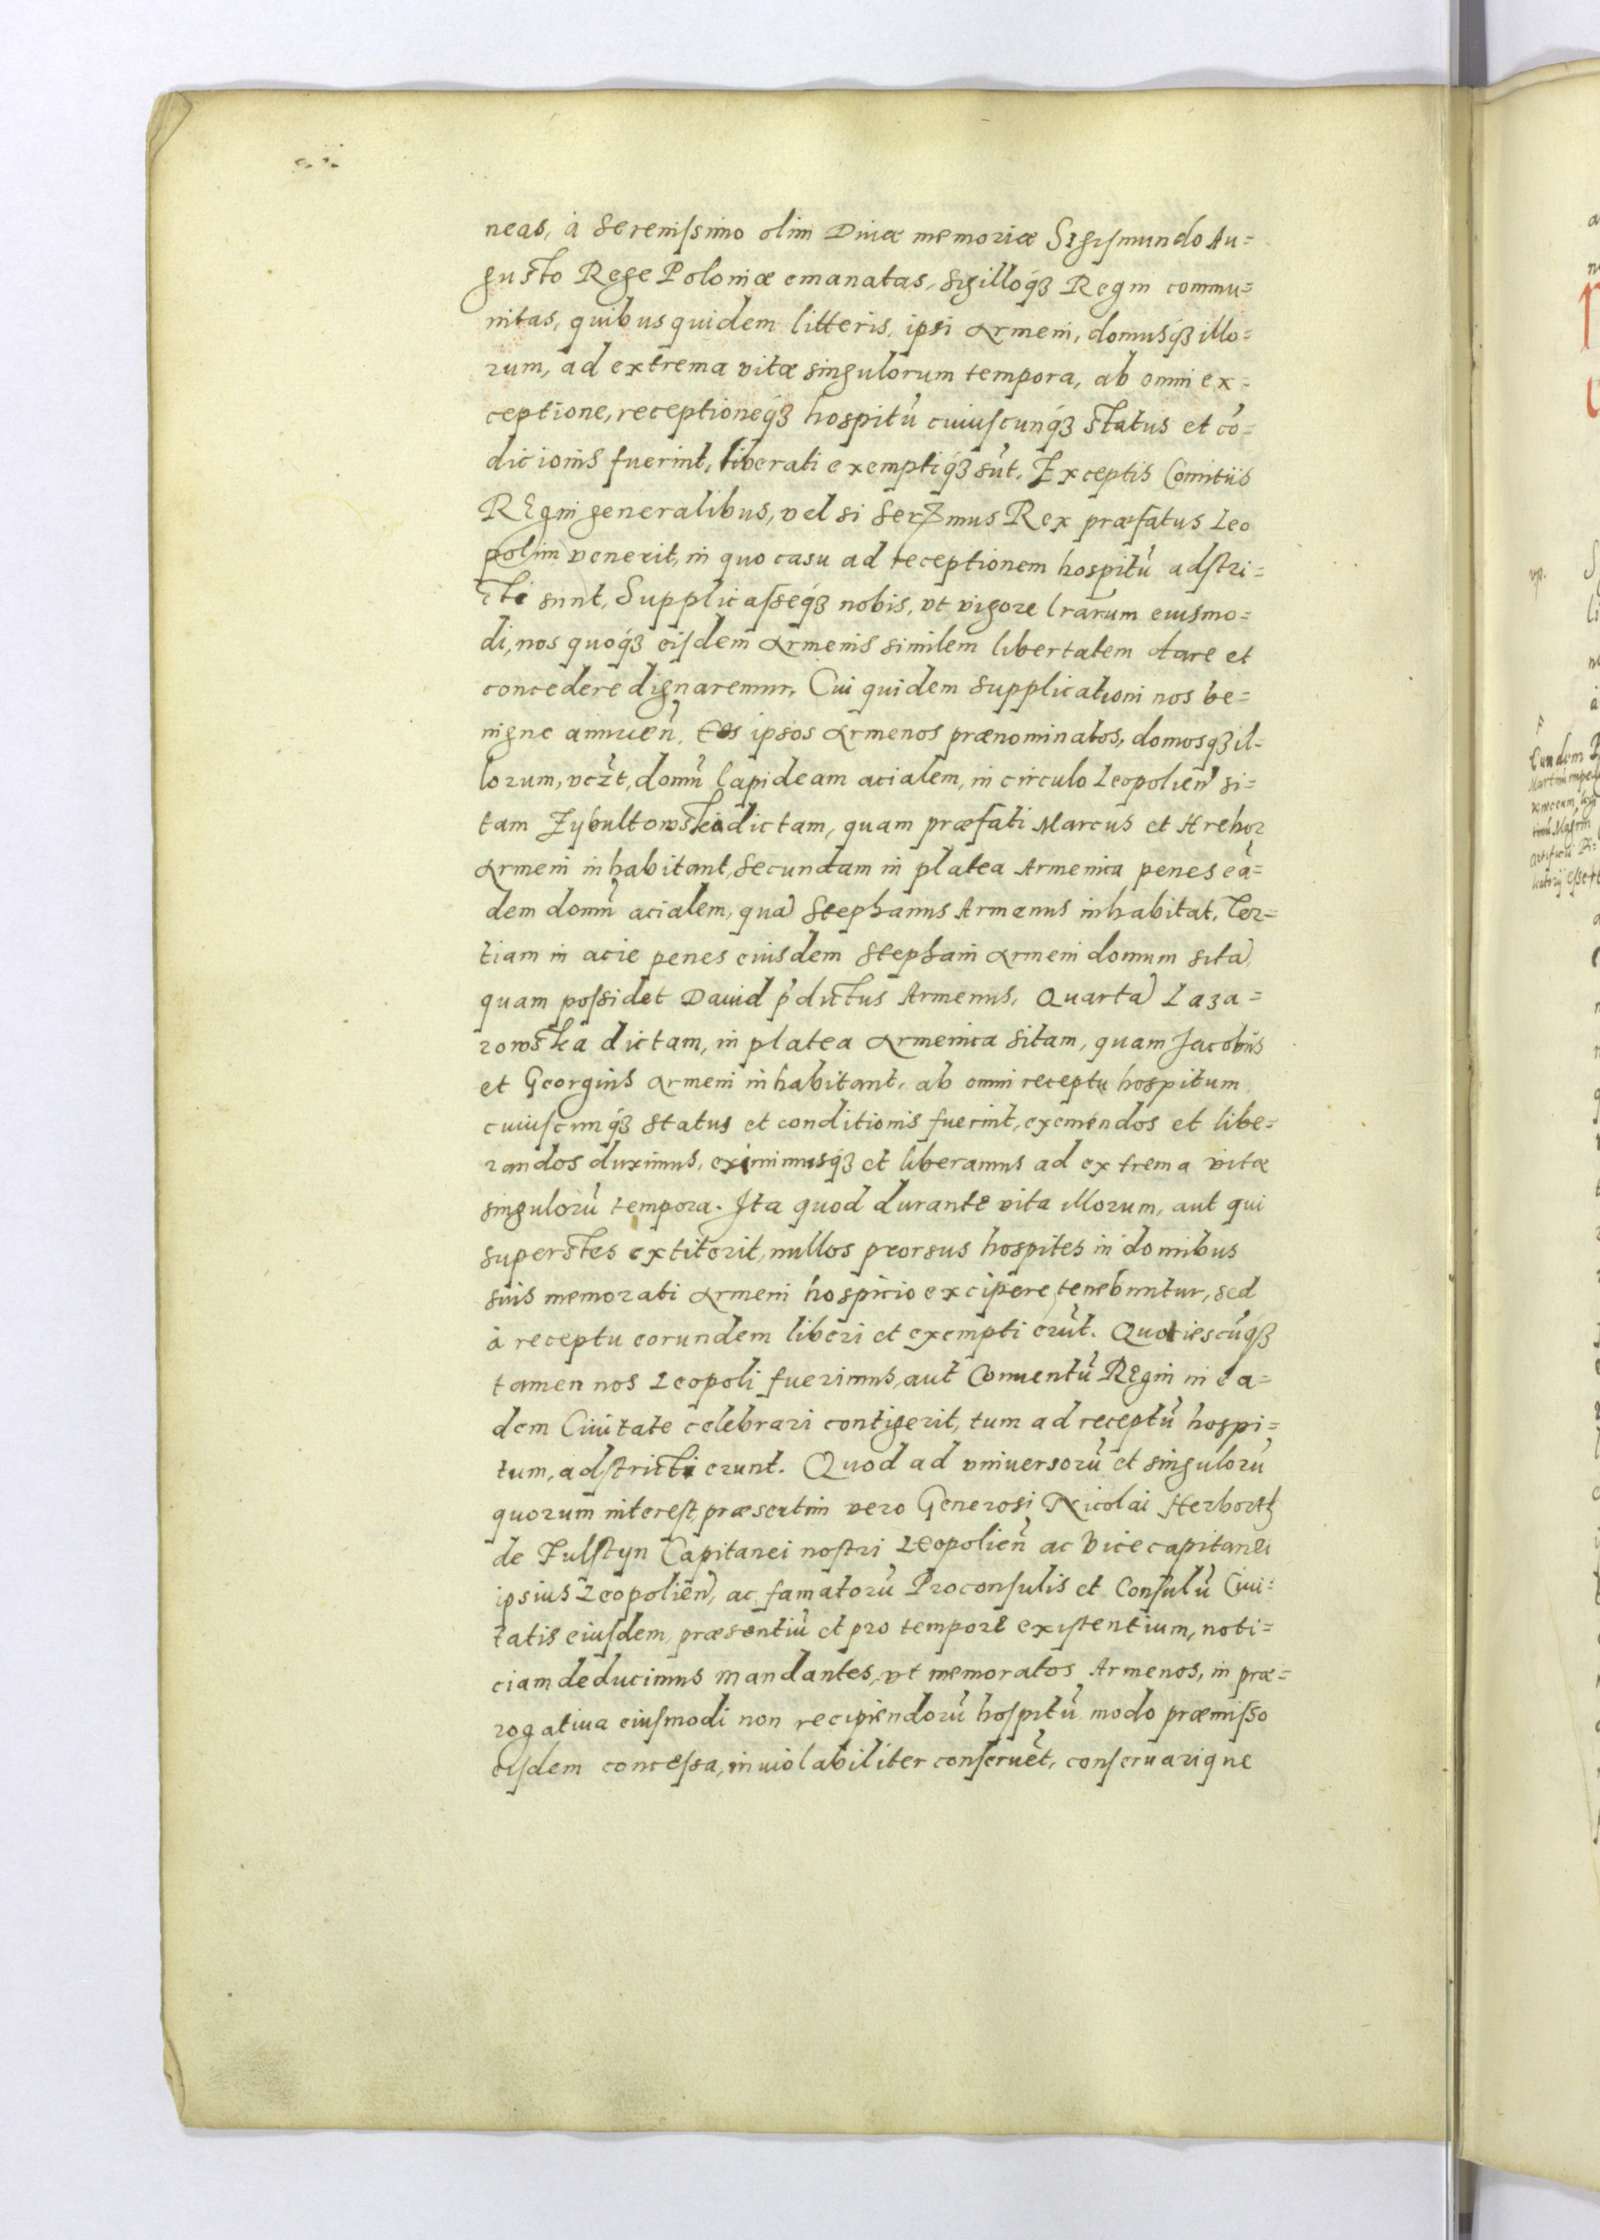 neas, à Serenissimo olim Diuæ memoriæ Sigismundo Au=
gusto Rege Poloniæ emanatas, sigilloq́ꝫ Regni commu=
nitas, quibus quidem litteris, ipsi Armeni, domusq́ꝫ illo=
rum, ad extrema vitæ singulorum tempora, ab omni ex=
ceptione, receptioneq́ꝫ hospitū cuiuscunq́ꝫ status et cō=
dicionis fuerint, liberati exemptiq́ꝫ sūt. Exceptis Comitiis
REgni generalibus, vel si Serꝫmus Rex præfatus Leo
polim venerit, in quo casu ad receptionem hospitū adstri=
cti sunt, Supplicasseq́ꝫ nobis, vt vigore lrarum eiusmo=
di, nos quoq́ꝫ eisdem Armenis similem libertatem dare et
concedere dignaremur, Cui quidem supplicationi nos be=
nigne annuen̄. Eos ipsos Armenos prænominatos, domosqꝫ il=
lorum, vcꝫt, domū lapideam acialem, in circulo Leopolien̄ si=
tam Zybultowska dictam, quam præfati Marcus et Hrehor
Armeni inhabitant, Secundam in platea Armenica penes eā=
dem domū acialem, quā Stephanus Armenus inhabitat, Ter=
tiam in acie penes eiusdem Stephani Armeni domum sitā,
quam possidet Dauid p̄dictus Armenus, Quartā Laza=
rowska dictam, in platea Armenica sitam, quam Jacobus
et Georgius Armeni inhabitant, ab omni receptu hospitum
cuiuscunq́ꝫ status et conditionis fuerint, eximendos et libe=
randos duximus, eximimusq́ꝫ et liberamus ad extrema vitæ
singulorū tempora. Ita quod durante vita illorum, aut qui
superstes extiterit, nullos prorsus hospites in domibus
suis memorati Armeni hospicio excipere tenebuntur, sed
à receptu eorundem liberi et exempti erūt. Quotiescūqꝫ
tamen nos Leopoli fuerimus, aut Conuentū REgni in ea=
dem Ciuitate celebrari contigerit, tum ad receptū hospi=
tum, adstricti erunt. Quod ad vniuersorū et singulorū
quorum interest, præsertim vero Generosi Nicolai Herborth
de Fulstyn Capitanei nostri Leopolien̄ ac Vicecapitanei
ipsius Leopolien̄, ac famatorū Proconsulis et Consulū Ciui=
tatis eiusdem, præsentiū et pro tempore existentium, noti=
ciam deducimus mandantes, vt memoratos Armenos, in præ=
rogatiua eiusmodi non recipiendorū hospitū modo præmisso
eisdem concessa, inuiolabiliter conseruēt, conseruarique
vp.
F